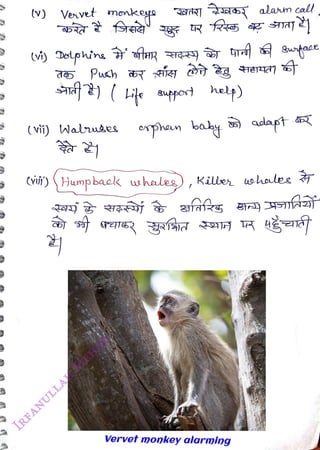 (v) Vervet monkeys खतरा देखकर alarm call
करते है जिससे खुद पर रिस्क बढ़ जाता है|
(vi) Dolphins में बीमार सदस्य को पानी की surface
तक Push कर सांस लेने हेतु सहायता की
जाती है। ( Life support help)
(vii) Walruses orphan baby को adapt कर
देते है।
(viii) Humpback whales, Killer whales में
स्वयं के सदस्यों के अतिरिक्त अन्य प्रजातियों
को भी बचाकर सुरक्षित स्थान पर पहुँचाती
है|
IRFANULLAH
Vervet monkey alarming